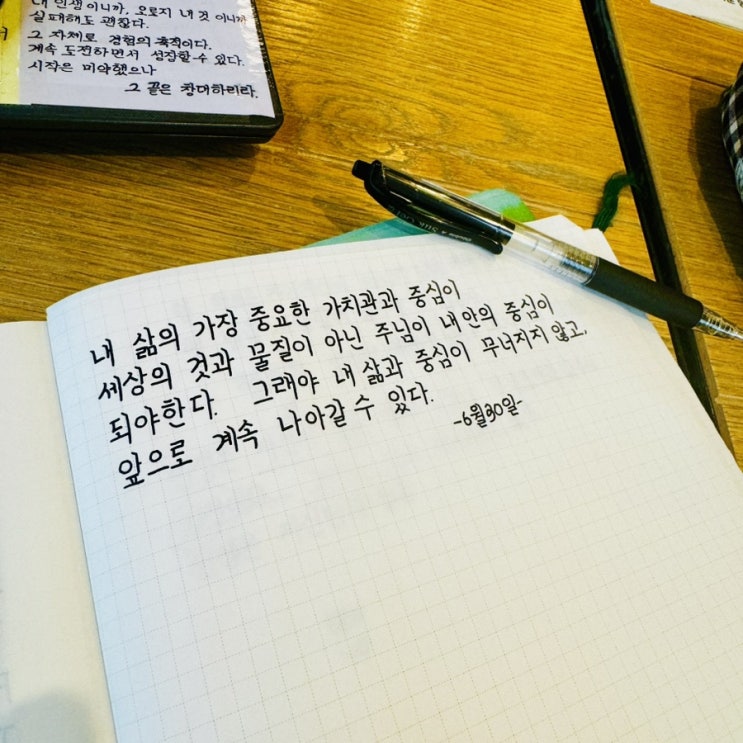 내 인생이니까, 오로지 내 것 이니까
실패해도 괜찮다.
그 자체로 경험의 축적이다.
계속 도전하면서 성장할 수 있다.
시작은 미약했으나
그 끝은 창대하리라.
내 삶의 가장 중요한 가치관과 중심이
세상의 것과 물질이 아닌 주님이 내 안의 중심이
되야한다. 그래야 내 삶과 중심이 무너지지 않고,
앞으로 계속 나아갈 수 있다.
-6월30일-